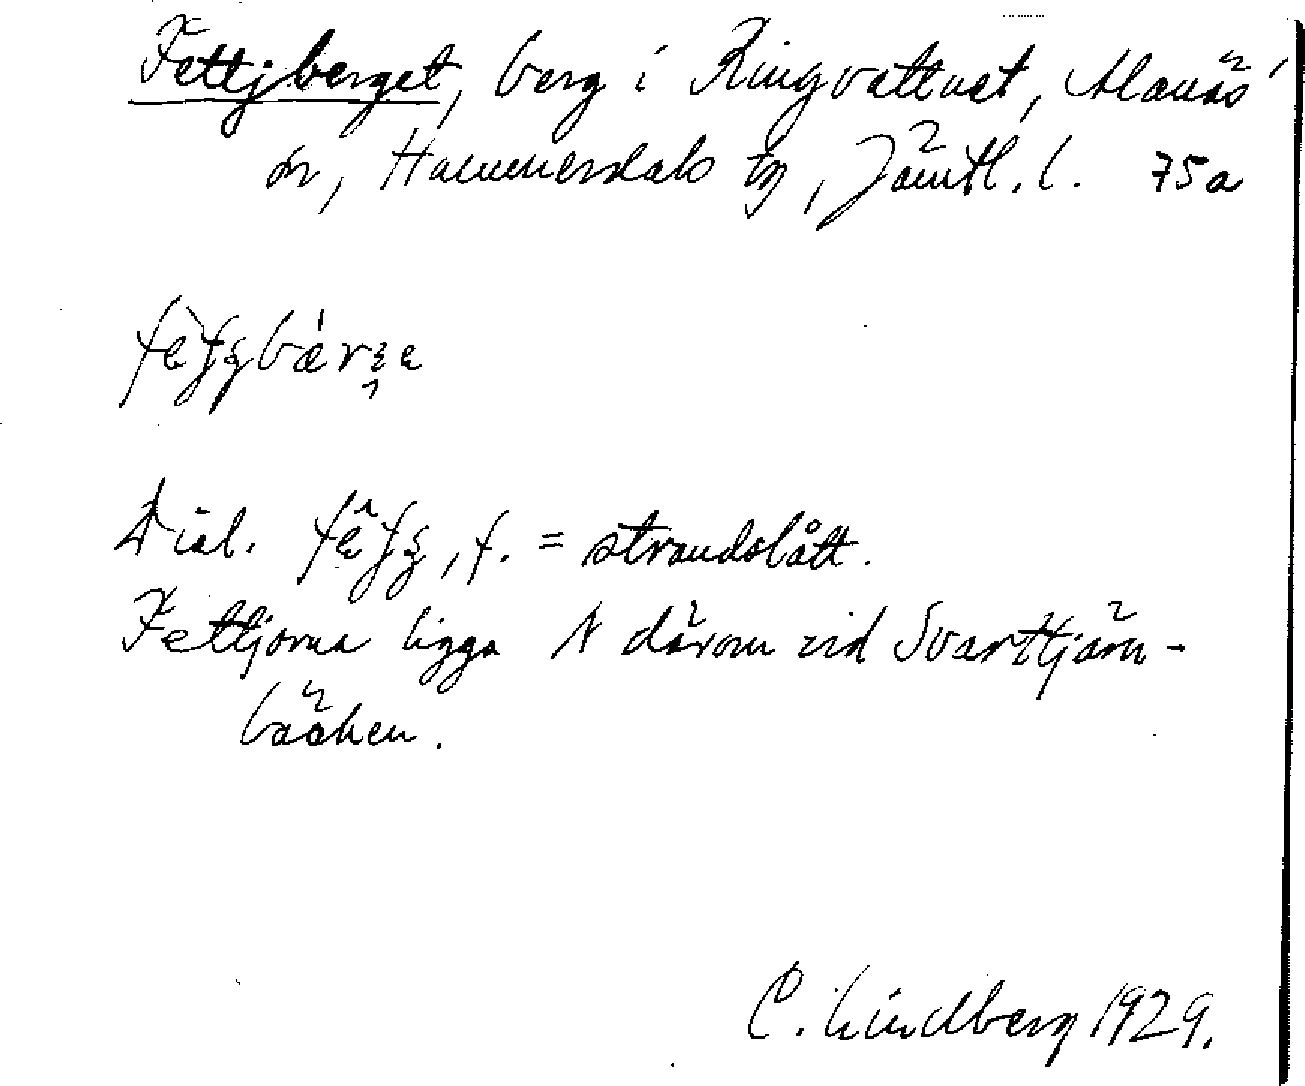 Fettjberget, berg i Ringvattnet, Alanäs
sn, Hammerdals tg, Jämtl. l. 75a
Dial. , f. = strandslått.
Fettjorna ligga N därom vid Svarttjärn-
bäcken.
C. Lindberg 1929.